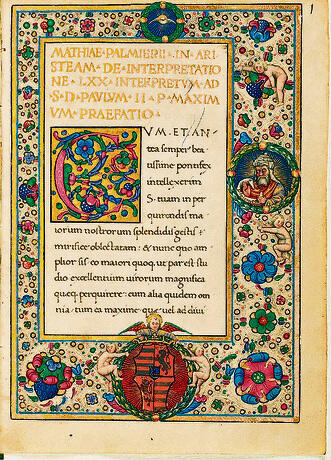 1
MATHIAE PALMIERII IN ARI
STEAM DE INTERPRETATIO
NE LXX INTERPRETVM AD
S D PAVLVM II P MAXIM
VM PRAEFATIO
CVM ET AN
tea semper bea
tissime pontifex
intellexerim
S. tuam in per
quirendis ma
iorum nostrorum splendidis gestis
mirifice oblectatam: & nunc quo am
plior sis eo maiori quoq. ut par est stu
dio excellentium uirorum magnifica
queq. perquirere: cum alia quidem om
nia tum ea maxime que uel ad diui